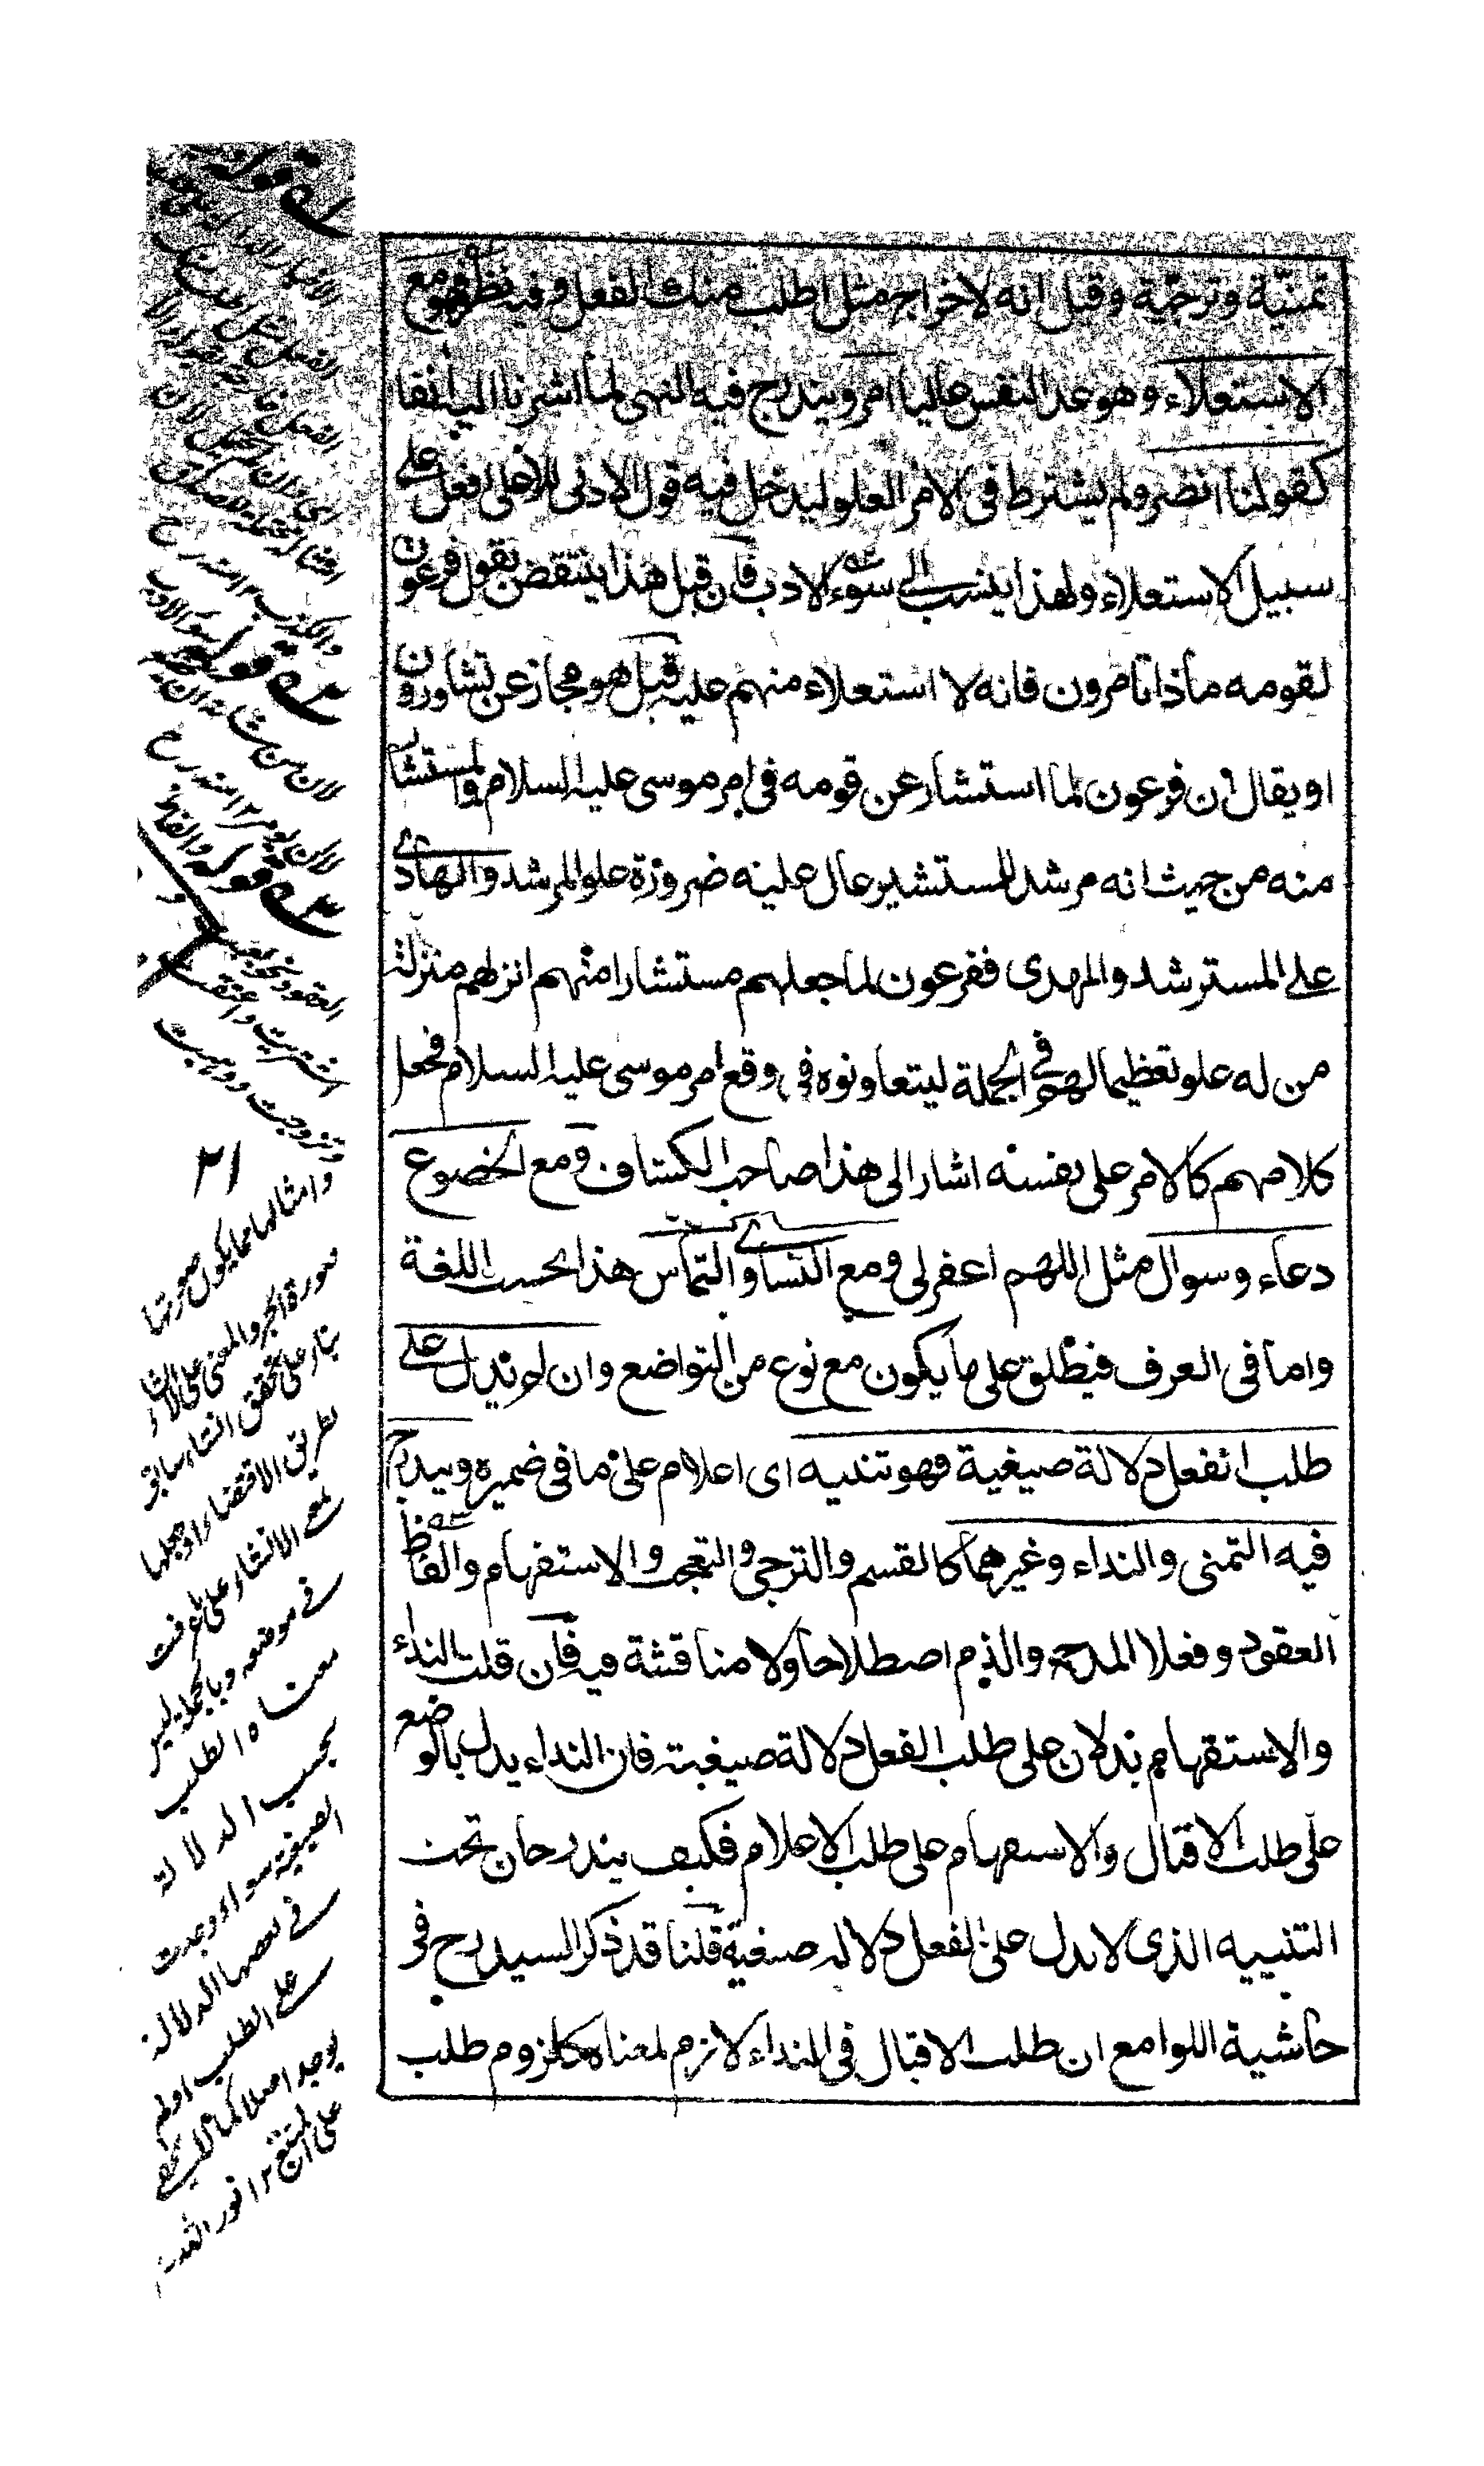 تمنيّة وترجّية وقيل انه لاخراج مثل اطلب منك الفعل وفيه نظر فهو مع
الاستعلاء وهو عد النفس عاليا امر ويندرج فيه النهى لما اشرنا اليه انفا
كقولنا انصر ولم يشترط فى الامر العلو ليدخل فيه قول الادنى للاعلى افعل على
سبيل الاستعلاء ولهذا ينسب الى سوء الادب فان قيل هذا ينتقض بقول فرعون
لقومه ماذا تامرون فانه لا استعلاء منهم عليه قيل هو مجاز عن تشاورون
او يقال ان فرعون لما استشار عن قومه فى امر موسى عليه السلام والمستشار
منه من حيث انه مرشد للمستشير عال عليه ضرورة علو المرشد والهادى
على المسترشد والمهدى ففرعون لما جعلهم مستشارا منهم انزلهم منزلة
من له علو تعظيما لهم فى الجملة ليتعاونوه فى وقع امر موسى عليه السلام فجعل
كلامهم كالامر على نفسه اشار الى هذا صاحب الكشاف ومع الخضوع
دعاء وسوال مثل اللهم اغفر لى ومع التساوى التماس هذا بحسب اللغة
واما فى العرف فيطلق على ما يكون مع نوع من التواضع وان لم يدل على
طلب الفعل دلالة صيغية فهو تنبيه اى اعلام على ما فى ضميره ويندرج
فيه التمنى والنداء وغيرهما كالقسم والترجى والتعجب والاستفهام والفاظ
العقود وفعلا المدح والذم اصطلاحا ولا مناقشة فيه فان قلت النداء
والاستفهام يدلان على طلب الفعل دلالة صيغية فان النداء يدل بالوضع
على طلب الاقبال والاستفهام على طلب الاعلام فكيف يندرجان تحت
التنبيه الذى لا يدل على الفعل دلالة صيغية قلنا قد ذكر السيد رح فى
حاشية اللوامع ان طلب الاقبال فى النداء لازم لمعناه كلزوم طلب
قوله
والكذب ١٢ منه رح
قوله سوء الادب
لان من شانه ان
١٢ منه رح
قوله والفاظ
العقود نحو بعت
اشتريت واعتقت
وتزوجت ووهبت
وامثالها مما يكون صورتها
صورة الخبر والمعنى على الانشاء
بناء على تحقق انشاء سابق
بطريق الاقتضاء او جعلها
بمعنى الانشاء على ما عرفت
فى موضعه وبالجملة ليس
معناه الطلب
بحسب الدلالة
الصيغية سواء وجدت
فى بعضها الدلالة
على الطلب او لم
يوجد اصلا كما لا يخفى
على المتتبع